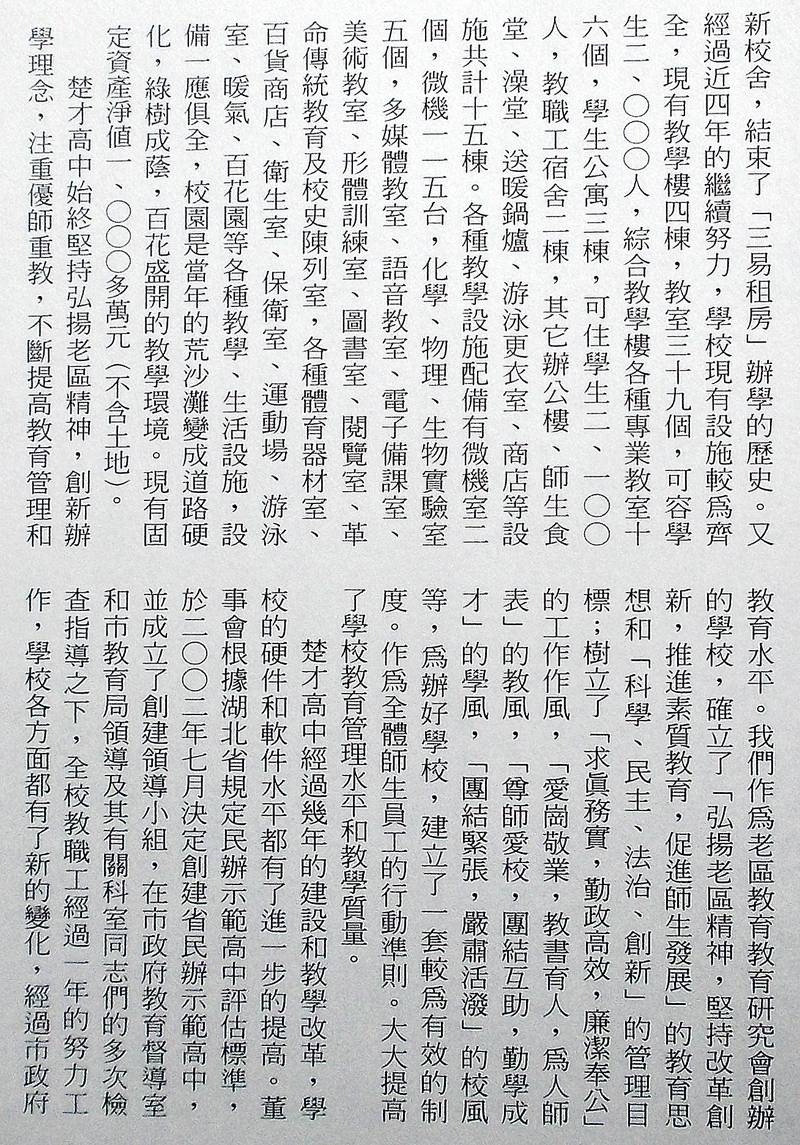 新校舍，結束了「三易租房」辦學的歷史。又
經過近四年的繼續努力，學校現有設施較爲齊
全，現有教學樓四棟，教室三十九個，可容學
生二、〇〇〇人，綜合教學樓各種專業教室十
六個，學生公寓三棟，可住學生二、一〇〇
人，教職工宿舍二棟，其它辦公樓、師生食
堂、澡堂、送暖鍋爐、游泳更衣室、商店等設
施共計十五棟。各種教學設施配備有微機室二
個，微機一一五台，化學、物理、生物實驗室
五個，多媒體教室、語音教室、電子備課室、
美術教室、形體訓練室、圖書室、閱覽室、革
命傳統教育及校史陳列室，各種體育器材室、
百貨商店、衛生室、保衛室、運動場、游泳
室、暖氣、百花園等各種教學、生活設施，設
備一應俱全，校園是當年的荒沙灘變成道路硬
化，綠樹成蔭，百花盛開的教學環境。現有固
定資產淨値一、〇〇〇多萬元（不含土地）。
楚才高中始終堅持弘揚老區精神，創新辦
學理念，注重優師重教，不斷提高教育管理和
教育水平。我們作爲老區教育教育研究會創辦
的學校，確立了「弘揚老區精神，堅持改革創
新，推進素質教育，促進師生發展」的教育思
想和「科學、民主、法治、創新」的管理目
標；樹立了「求眞務實，勤政高效，廉潔奉公」
的工作作風，「愛崗敬業，教書育人，爲人師
表」的教風，「尊師愛校，團結互助，勤學成
才」的學風，「團結緊張，嚴肅活潑」的校風
等，爲辦好學校，建立了一套較爲有效的制
度。作爲全體師生員工的行動準則。大大提高
了學校教育管理水平和教學質量。
楚才高中經過幾年的建設和教學改革，學
校的硬件和軟件水平都有了進一步的提高。董
事會根據湖北省規定民辦示範高中評估標準，
於二〇〇二年七月決定創建省民辦示範高中，
並成立了創建領導小組，在市政府教育督導室
和市教育局領導及其有關科室同志們的多次檢
查指導之下，全校教職工經過一年的努力工
作，學校各方面都有了新的變化，經過市政府